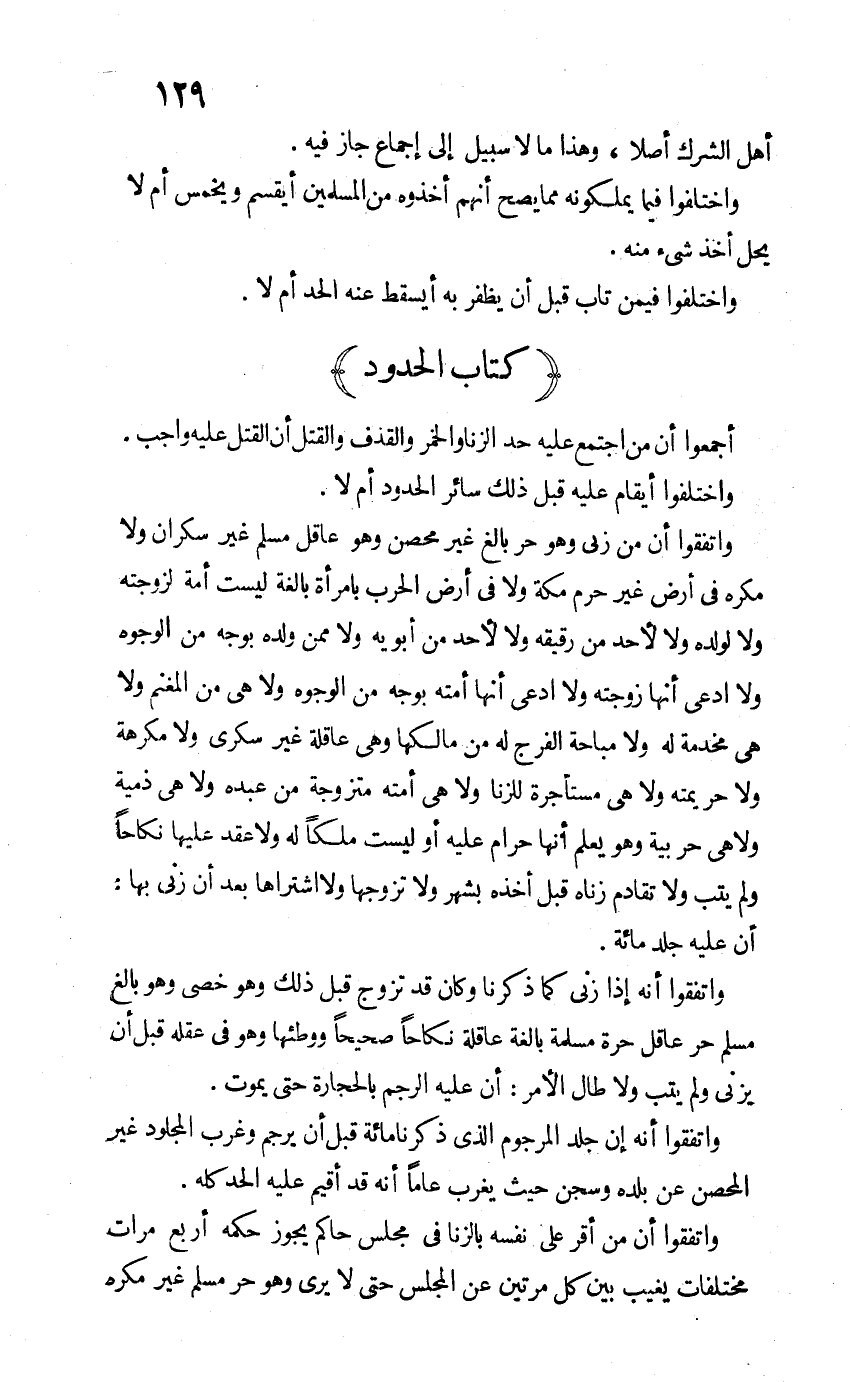 ١٢٩
أهل الشرك أصلا ، وهذا ما لا سبيل إلى إجماع جاز فيه .
واختلفوا فيما يملكونه مما يصح أنهم أخذوه من المسلمين أيقسم ويخمس أم لا
يحل أخذ شىء منه .
واختلفوا فيمن تاب قبل أن يظفر به أيسقط عنه الحد أم لا .
﴿ كتاب الحدود ﴾
أجمعوا أن من اجتمع عليه حد الزنا والخمر والقذف والقتل أن القتل عليه واجب .
واختلفوا أيقام عليه قبل ذلك سائر الحدود أم لا .
واتفقوا أن من زنى وهو حر بالغ غير محصن وهو عاقل مسلم غير سكران ولا
مكره فى أرض غير حرم مكة ولا فى أرض الحرب بامرأة بالغة ليست أمة لزوجته
ولا لولده ولا لأحد من رقيقه ولا لأحد من أبويه ولا ممن ولده بوجه من الوجوه
ولا ادعى أنها زوجته ولا ادعى أنها أمته بوجه من الوجوه ولا هى من المغنم ولا
هى مخدمة له ولا مباحة الفرج له من مالكها وهى عاقلة غير سكرى ولا مكرهة
ولا حريمته ولا هى مستأجرة للزنا ولا هى أمته متزوجة من عبده ولا هى ذمية
ولاهى حربية وهو يعلم أنها حرام عليه أو ليست ملكاً له ولا عقد عليها نكاحاً
ولم يتب ولا تقادم زناه قبل أخذه بشهر ولا تزوجها ولا اشتراها بعد أن زنى بها :
أن عليه جلد مائة .
واتفقوا أنه إذا زنى كما ذكرنا وكان قد تزوج قبل ذلك وهو خصى وهو بالغ
مسلم حر عاقل حرة مسلمة بالغة عاقلة نكاحاً صحيحاً ووطئها وهو فى عقله قبل أن
يزنى ولم يتب ولا طال الأمر : أن عليه الرجم بالحجارة حتى يموت .
واتفقوا أنه إن جلد المرجوم الذى ذكرنا مائة قبل أن يرجم وغرب المجلود غير
المحصن عن بلده وسجن حيث يغرب عاماً أنه قد أقيم عليه الحد كله .
واتفقوا أن من أقر على نفسه بالزنا فى مجلس حاكم يجوز حكمه أربع مرات
مختلفات يغيب بين كل مرتين عن المجلس حتى لا يرى وهو حر مسلم غير مكره